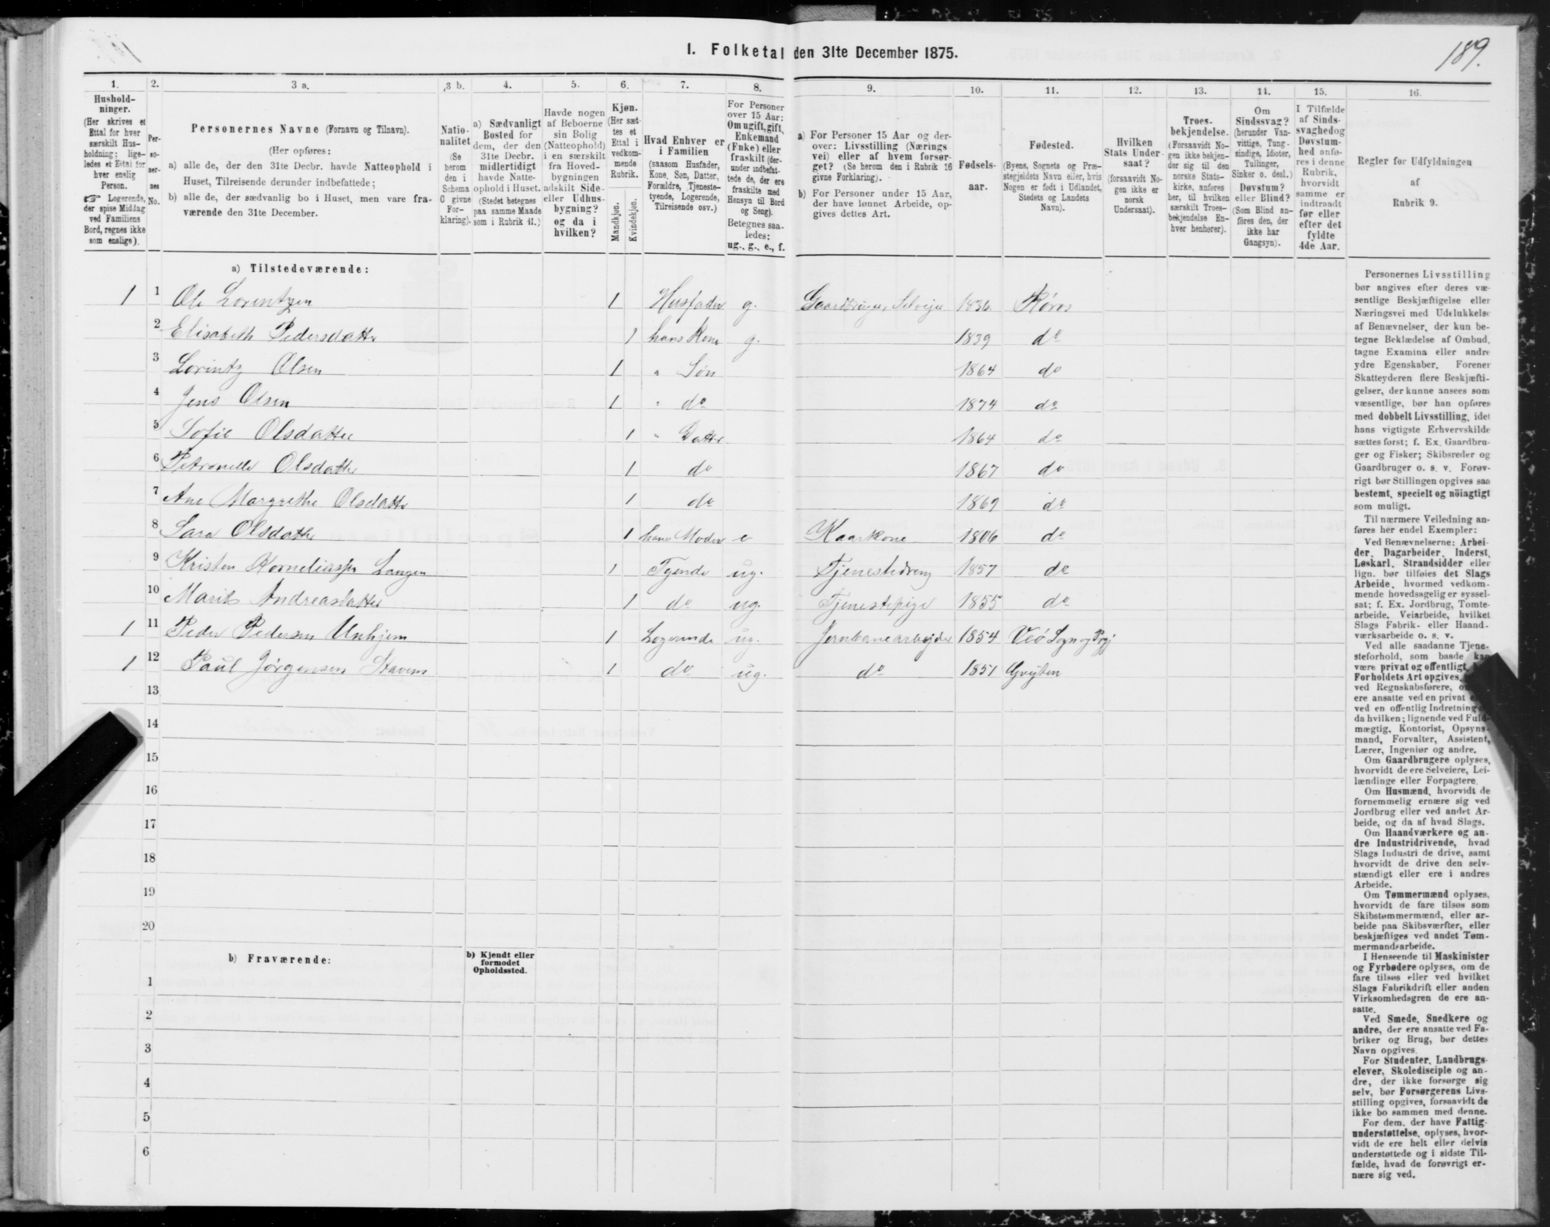 I. Folketal den 31te December 1875.
189.
1. 2. 3 a. 3 b. 4. 5. 6. 7. 8. 9. 10. 11. 12. 13. 14. 15. 16.
Hushold-
ninger.
(Her skrives et
Ettal for hver
særskilt Hus-
holdning; lige-
ledes et Ettal for
hver enslig
Person.
☞ Logerende,
der spise Middag
ved Familiens
Bord, regnes ikke
som enslige).
Per-
so-
ner-
nes
No.
Personernes Navne (Fornavn og Tilnavn).
(Her opføres:
a) alle de, der den 31te Decbr. havde Natteophold i
Huset, Tilreisende derunder indbefattede;
b) alle de, der sædvanlig bo i Huset, men vare fra-
værende den 31te December.
Natio-
nalitet
(Se
herom
den i
Schema
C givne
For-
klaring).
a) Sædvanligt
Bosted for
dem, der den
31te Decbr.
midlertidigt
havde Natte-
ophold i Huset.
(Stedet betegnes
paa samme Maade
som i Rubrik 11.)
Havde nogen
af Beboerne
sin Bolig
(Natteophold)
i en særskilt
fra Hoved-
bygningen
adskilt Side-
eller Udhus-
bygning?
og da i
hvilken?
Kjøn.
(Her sæt-
tes et
Ettal i
vedkom-
mende
Rubrik.
Mandkjøn.
Kvindekjøn.
Hvad Enhver er
i Familien
(saasom Husfader,
Kone, Søn, Datter,
Forældre, Tjeneste-
tyende, Logerende,
Tilreisende osv.)
For Personer
over 15 Aar:
Om ugift, gift,
Enkemand
(Enke) eller
fraskilt (der-
under indbefat-
tede de, der ere
fraskilte med
Hensyn til Bord
og Seng).
Betegnes saa-
ledes:
ug., g., e., f.
a) For Personer 15 Aar og der-
over: Livsstilling (Nærings
vei) eller af hvem forsør-
get? (Se herom den i Rubrik 16
givne Forklaring).
b) For Personer under 15 Aar,
der have lønnet Arbeide, op-
gives dettes Art.
Fødsels-
aar.
Fødested.
(Byens, Sognets og Præ-
stegjeldets Navn eller, hvis
Nogen er født i Udlandet,
Stedets og Landets
Navn).
Hvilken
Stats Under-
saat?
(forsaavidt No-
gen ikke er
norsk
Undersaat).
Troes-
bekjendelse.
(Forsaavidt No-
gen ikke bekjen-
der sig til den
norske Stats-
kirke, anføres
her, til hvilken
særskilt Troes-
bekjendelse En-
hver henhører).
Om
Sindssvag?
(herunder Van-
vittige, Tung-
sindige, Idioter,
Tullinger,
Sinker o. desl.)
Døvstum?
eller Blind?
(Som Blind an-
føres den, der
ikke har
Gangsyn).
I Tilfælde
af Sinds-
svaghed og
Døvstum-
hed anfø-
res i denne
Rubrik,
hvorvidt
samme er
indtraadt
før eller
efter det
fyldte
4de Aar.
Regler for Udfyldningen
af
Rubrik 9.
a) Tilstedeværende:
1 1 Ole Lorentzen 1 Husfader g. Gaardbruger, Selveier 1836 Røros
2 Elisabeth Pedersdatter 1 hans Kone g. 1839 do
3 Lorintz Olsen 1 " Søn 1864 do
4 Jens Olsen 1 " do 1874 do
5 Sofie Olsdatter 1 " Datter 1864 do
6 Petronelle Olsdatter 1 do 1867 do
7 Ane Margrethe Olsdatter 1 do 1869 do
8 Sara Olsdatter 1 hans Moder e Kaarkone 1806 do
9 Kristen Korneliussen Langen 1 Tyende ug. Tjenestedreng 1857 do
10 Marit Andreasdatter 1 do ug. Tjenestepige 1855 do
1 11 Peder Pedersen Unhjem 1 Logerende ug. Jernbanearbejder 1854 Veø Sogn og Prgj
1 12 Paul Jørgensen Stavem 1 do ug. do 1851 Gryjten
13
14
15
16
17
18
19
20
b) Fraværende:
b) Kjendt eller
formodet
Opholdssted.
1
2
3
4
5
6
Personernes Livsstilling
bør angives efter deres væ-
sentlige Beskjæftigelse eller
Næringsvei med Udelukkelse
af Benævnelser, der kun be-
tegne Beklædelse af Ombud,
tagne Examina eller andre
ydre Egenskaber. Forener
Skatteyderen flere Beskjæfti-
gelser, der kunne ansees som
væsentlige, bør han opføres
med dobbelt Livsstilling, idet
hans vigtigste Erhvervskilde
sættes først; f. Ex. Gaardbru-
ger og Fisker; Skibsreder og
Gaardbruger o. s. v. Forøv-
rigt bør Stillingen opgives saa
bestemt, specielt og nöiagtigt
som muligt.
Til nærmere Veiledning an-
føres her endel Exempler:
Ved Benævnelserne: Arbei-
der, Dagarbeider, Inderst,
Løskarl, Strandsidder eller
lign. bør tilføies det Slags
Arbeide, hvormed vedkom-
mende hovedsagelig er syssel-
sat; f. Ex. Jordbrug, Tomte-
arbeide, Veiarbeide, hvilket
Slags Fabrik- eller Haand-
værksarbeide o. s. v.
Ved alle saadanne Tjene-
steforhold, som baade kan
være privat og offentligt,
Forholdets Art opgives,
ved Regnskabsførere,
ere ansatte ved en privat
ved en offentlig Indretning
da hvilken; lignende ved Fuld-
mægtig, Kontorist, Opsyns-
mand, Forvalter, Assistent,
Lærer, Ingeniør og andre.
Om Gaardbrugere oplyses,
hvorvidt de ere Selveiere, Lei-
lændinge eller Forpagtere.
Om Husmænd, hvorvidt de
fornemmelig ernære sig ved
Jordbrug eller ved andet Ar-
beide, og da af hvad Slags.
Om Haandværkere og an-
dre Industridrivende, hvad
Slags Industri de drive, samt
hvorvidt de drive den selv-
stændigt eller ere i andres
Arbeide.
Om Tømmermænd oplyses,
hvorvidt de fare tilsøs som
Skibstømmermænd, eller ar-
beide paa Skibsværfter, eller
beskjæftiges ved andet Tøm-
mermandsarbeide.
I Henseende til Maskinister
og Fyrbødere oplyses, om de
fare tilsøs eller ved hvilket
Slags Fabrikdrift eller anden
Virksomhedsgren de ere an-
satte.
Ved Smede, Snedkere og
andre, der ere ansatte ved Fa-
briker og Brug, bør dettes
Navn opgives.
For Studenter, Landbrugs-
elever, Skoledisciple og an-
dre, der ikke forsørge sig
selv, bør Forsørgerens Livs-
stilling opgives, forsaavidt de
ikke bo sammen med denne.
For dem, der have Fattig-
understøttelse, oplyses, hvor-
vidt de ere helt eller delvis
understøttede og i sidste Til-
fælde, hvad de forøvrigt er-
nære sig ved.